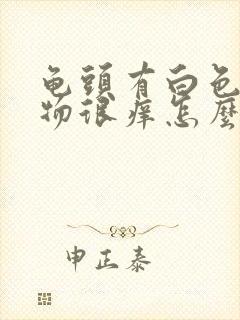 龟頭有白色
物很痒怎麽
申正泰